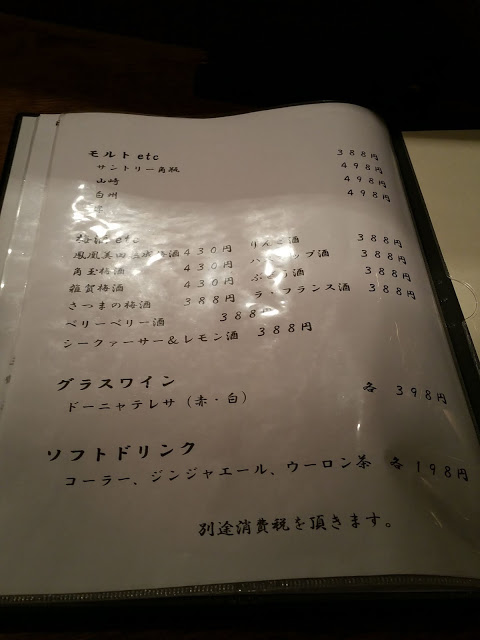 モルトetc
サントリー角瓶 388円
山崎 498円
白州 498円
498円
梅酒etc
鳳凰美田 梅酒 430円 りんご酒 388円
角玉梅酒 430円 388円
雑賀梅酒 430円 ぶどう酒 388円
さつまの梅酒 388円 ラ・フランス酒 388円
ベリーベリー酒 388円
シークァーサー&レモン酒 388円
グラスワイン
ドーニャテレサ(赤・白) 各 398円
ソフトドリンク
コーラー、ジンジャエール、ウーロン茶 各 198円
別途消費税を頂きます。